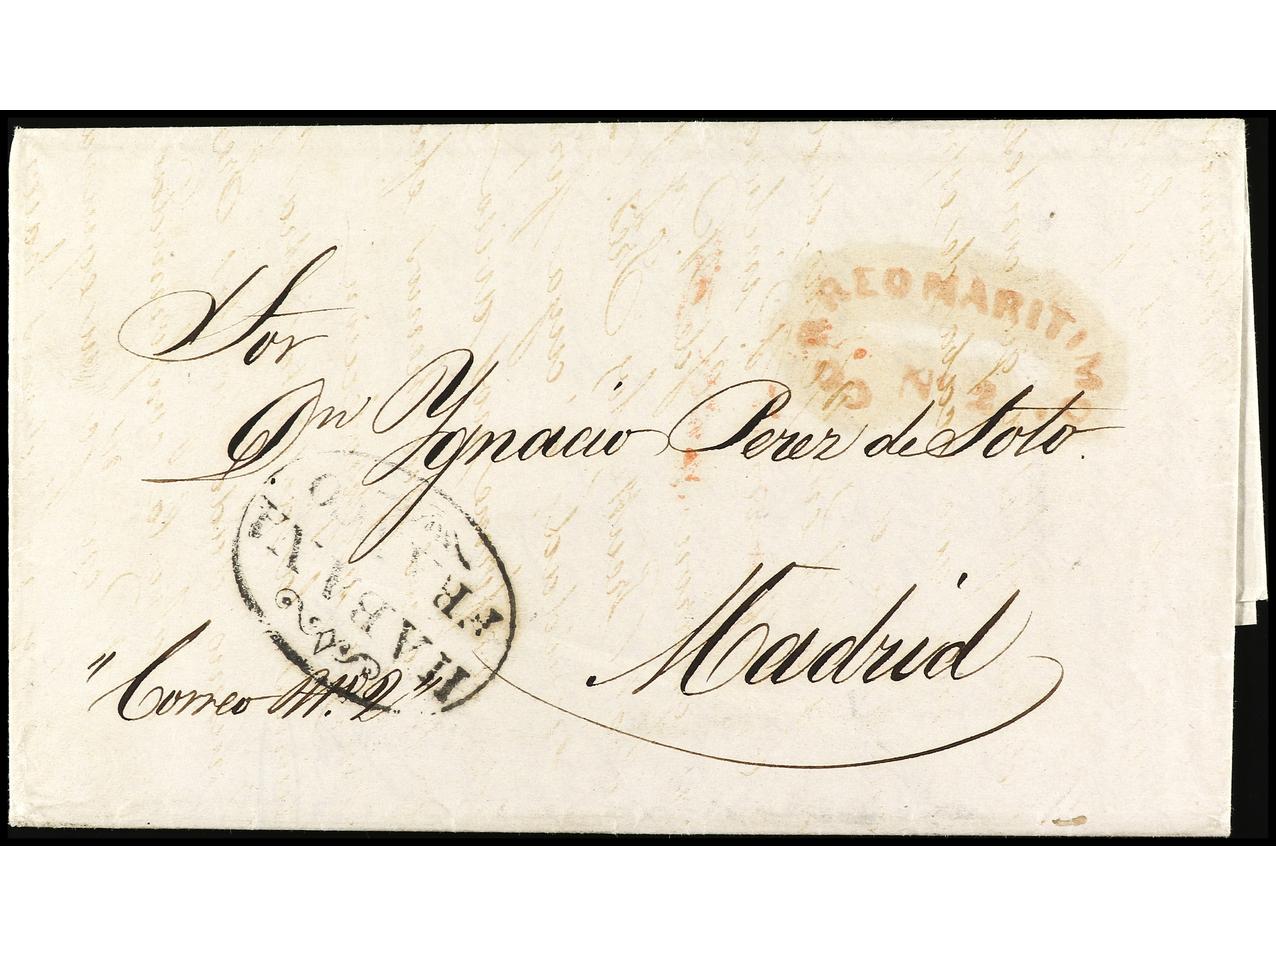 CORREO MARITIMO
No. 2
Sor
Dn Ygnacio Perez de Soto.
Madrid
HABANA
"Correo N. 2"